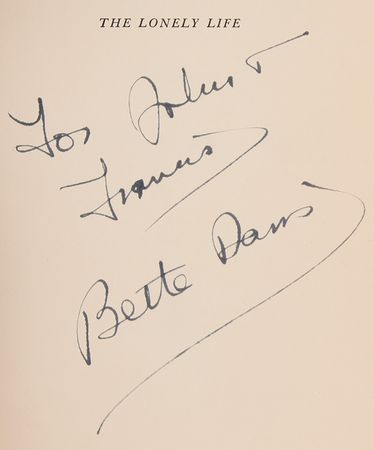 THE LONELY LIFE
For John &
Francis
Bette Davis